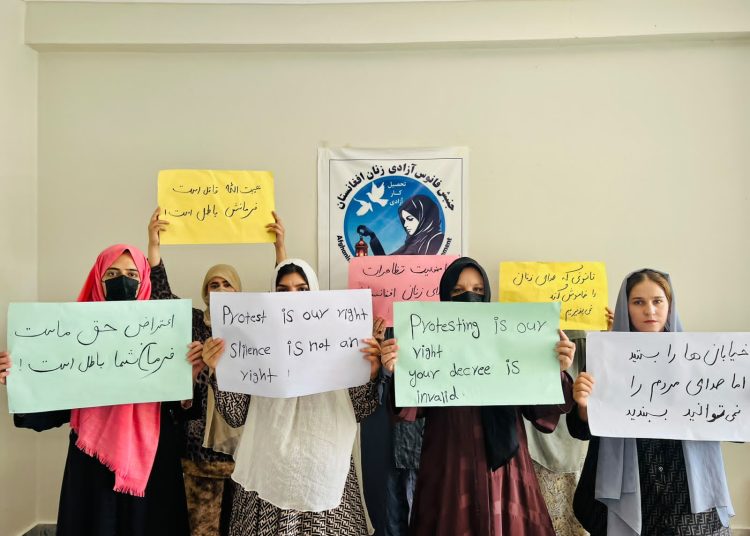 عبت الله قاتل است
فرمانش باطل است!
جنبش فانوس آزادی زنان افغانستان
تحصیل
کار
آزادی
ممنوعیت تظاهرات
زنان افغانستان
قانونی که صدای زنان
را خاموش کند
نمی‌پذیریم
اعتراض حق ماست
فرمان شما باطل است!
Protest is our right
Sliience is not an
right!
Protesting is our
right
your decree is
invalid.
خیابان ها را بستید
اما صدای مردم را
نمی‌توانید ببندید